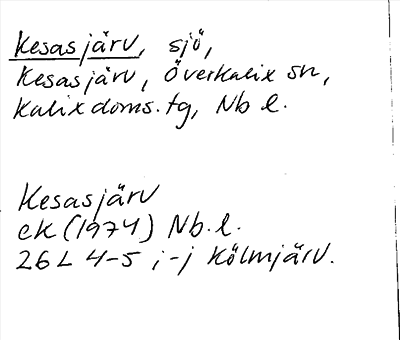 Kesasjärv, sjö,
Kesasjärv, Överkalix sn,
Kalix doms.tg, Nb l.
Kesasjärv
ek (1974) Nb.l.
26 L 4-5 i-j Kölmjärv.